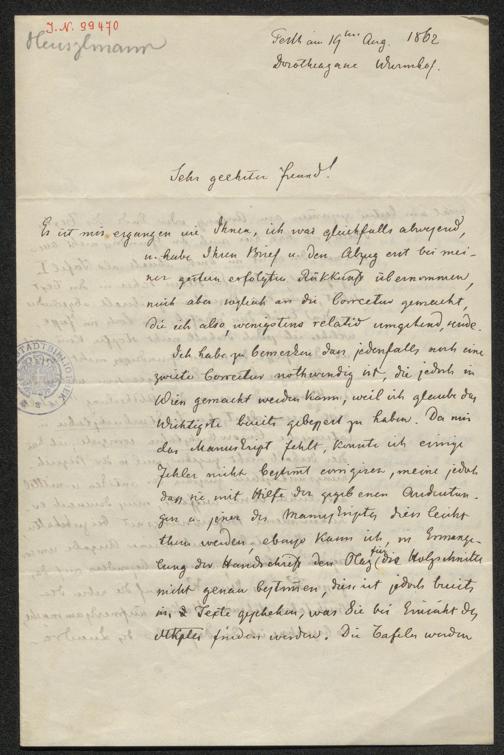 J. N. 99470
Henszlmann
Pesth am 19ten Aug. 1862
Dorotheagasse Wurmhof.
Sehr geehrter Freund!
Es ist mir ergangen wie Ihnen, ich war gleichfalls abwesend,
u. habe Ihren Brief u. den Abzug erst bei mei-
ner gestern erfolgten Rükkunft übernommen,
mich aber sogleich an die Correctur gemacht,
die ich also, wenigstens relativ umgehend, sende.
Ich habe zu bemerken dass jedenfalls noch eine
zweite Correctur nothwendig ist, die jedoch in
Wien gemacht werden kann, weil ich glaube das
Wichtigste bereits gebessert zu haben. Da mir
das Manuskript fehlt, konnte ich einige
Fehler nicht bestimt corrigiren, meine jedoch
dass sie mit Hilfe der gegebenen Andeutun-
gen u. jener des Manuskriptes diess leicht
thun werden, ebenso kann ich, in Ermange-
lung der Handschrift den Platz für die Holzschnitte
nicht genau bestimen, diess ist jedoch bereits
im Texte geschehen, was Sie bei Einsicht des
finden werden. Die Tafeln werden
STADTBIBLIOTHEK